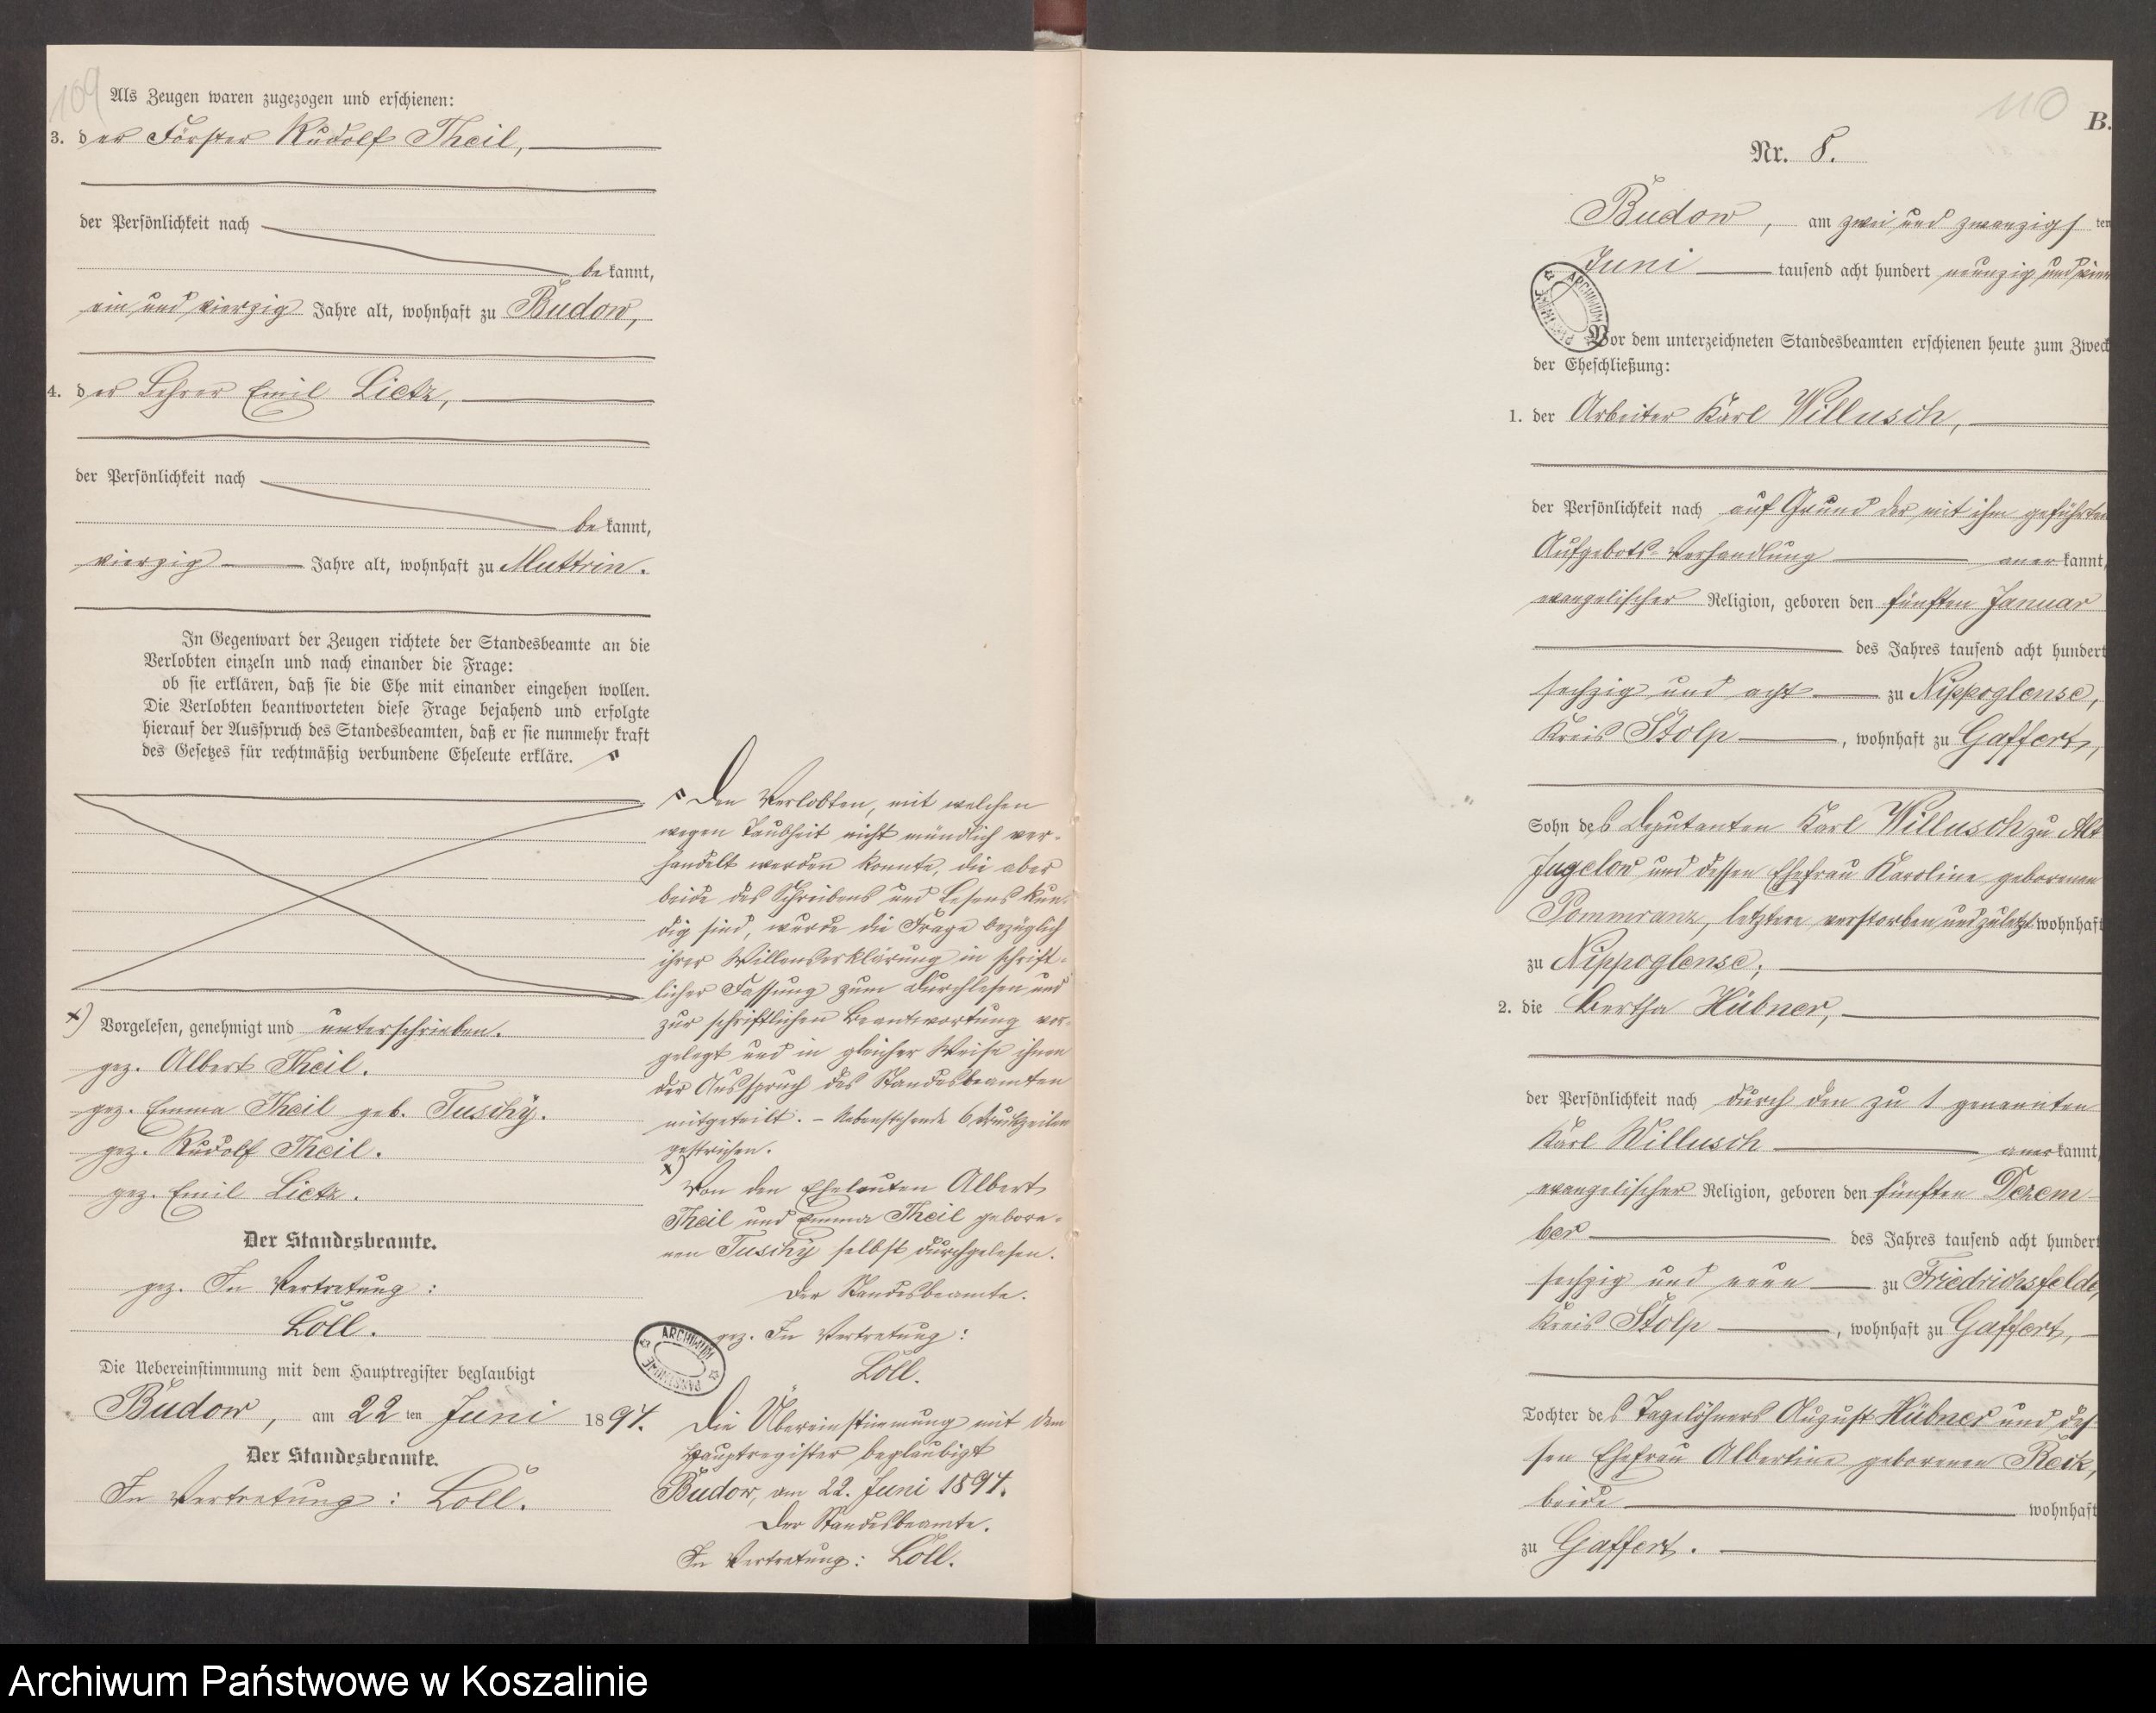 109
Als Zeugen waren zugezogen und erschienen:
3. der Förster Rudolf Theil,
der Persönlichkeit nach
bekannt,
ein und vierzig Jahre alt, wohnhaft zu Budow,
4. der Lehrer Emil Lietz,
der Persönlichkeit nach
bekannt,
vierzig Jahre alt, wohnhaft zu Muttrin.
In Gegenwart der Zeugen richtete der Standesbeamte an die
Verlobten einzeln und nach einander die Frage:
ob sie erklären, daß sie die Ehe mit einander eingehen wollen.
Die Verlobten beantworteten diese Frage bejahend und erfolgte
hierauf der Ausspruch des Standesbeamten, daß er sie nunmehr kraft
des Gesetzes für rechtmäßig verbundene Eheleute erkläre.
x) Vorgelesen, genehmigt und unterschrieben.
gez. Albert Theil.
gez. Emma Theil geb. Tuschÿ.
gez. Rudolf Theil.
gez. Emil Lietz.
Der Standesbeamte.
gez. In Vertretung:
Löll.
Die Uebereinstimmung mit dem Hauptregister beglaubigt
Budow, am 22ten Juni 1894.
Der Standesbeamte.
In Vertretung: Löll.
Den Verlobten, mit welchen
wegen Taubheit nicht mündlich ver-
handelt werden konnte, die aber
beide des Schreibens und Lesens kun-
dig sind, wurde die Frage bezüglich
ihrer Willenserklärung in schrift-
licher Fassung zum Durchlesen und
zur schriftlichen Beantwortung vor-
gelegt und in gleicher Weise ihnen
der Ausspruch des Standesbeamten
mitgeteilt. - Nebenstehende 6 Druckzeilen
gestrichen.
x) Von den Eheleuten Albert
Theil und Emma Theil gebore-
nen Tuschÿ selbst durchgelesen.
Der Standesbeamte.
gez. In Vertretung:
Löll.
ARCHIWUM PAŃSTWOWE
Die Übereinstimmung mit dem
Hauptregister beglaubigt
Budow, am 22. Juni 1894.
Der Standesbeamte.
In Vertretung: Löll.
110
B.
Nr. 8.
Budow, am zwei und zwanzigsten
Juni tausend acht hundert neunzig und vier
ARCHIWUM PAŃSTWOWE
Vor dem unterzeichneten Standesbeamten erschienen heute zum Zweck
der Eheschließung:
1. der Arbeiter Karl Willusch,
der Persönlichkeit nach auf Grund der mit ihm geführten
Aufgebots-Verhandlung anerkannt,
evangelischer Religion, geboren den fünften Januar
des Jahres tausend acht hundert
sechzig und acht zu Nippoglense,
Kreis Stolp, wohnhaft zu Gaffert,
Sohn des Deputanten Karl Willusch zu Alt
Jugelow und dessen Ehefrau Karoline geborenen
Pommranz, letztere verstorben und zuletzt wohnhaft
zu Nippoglense;
2. die Bertha Hübner,
der Persönlichkeit nach durch den zu 1 genannten
Karl Willusch anerkannt,
evangelischer Religion, geboren den fünften Dezem-
ber des Jahres tausend acht hundert
sechzig und neun zu Friedrichsfelde,
Kreis Stolp, wohnhaft zu Gaffert,
Tochter des Tagelöhners August Hübner und des-
sen Ehefrau Albertine geborenen Reck,
beide wohnhaft
zu Gaffert.
Archiwum Państwowe w Koszalinie